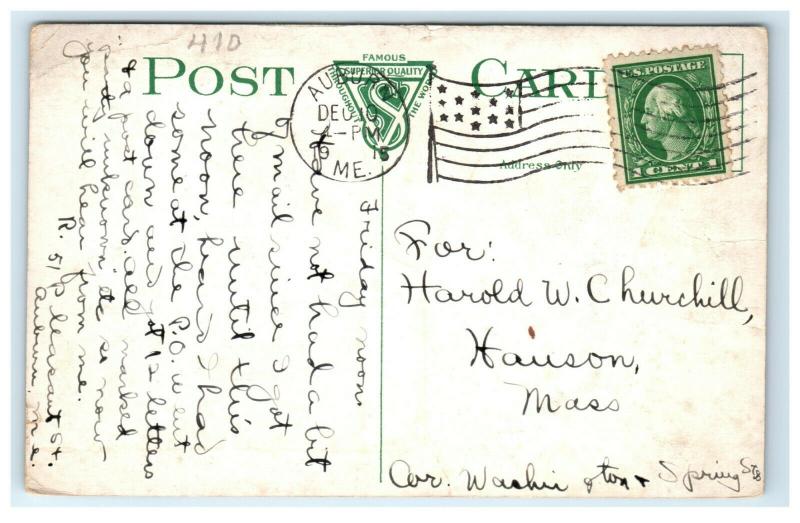 410
POST CARD
FAMOUS
SUPERIOR QUALITY
THROUGHOUT THE WORLD
S
AUBURN
DEC 10
4-PM
1915
ME.
U.S. POSTAGE
1 CENT 1
Address Only
Friday noon
Have not had a bit
of mail since I got
here until this
noon, heard I had
some at the P.O. went
down and got 12 letters
& a post card all marked
"and unknown" etc so now
you will hear from me.
R. 51 Pleasant St.
Auburn, Me.
For:
Harold W. Churchill,
Hanson,
Mass
Cor. Washington & Spring Sts